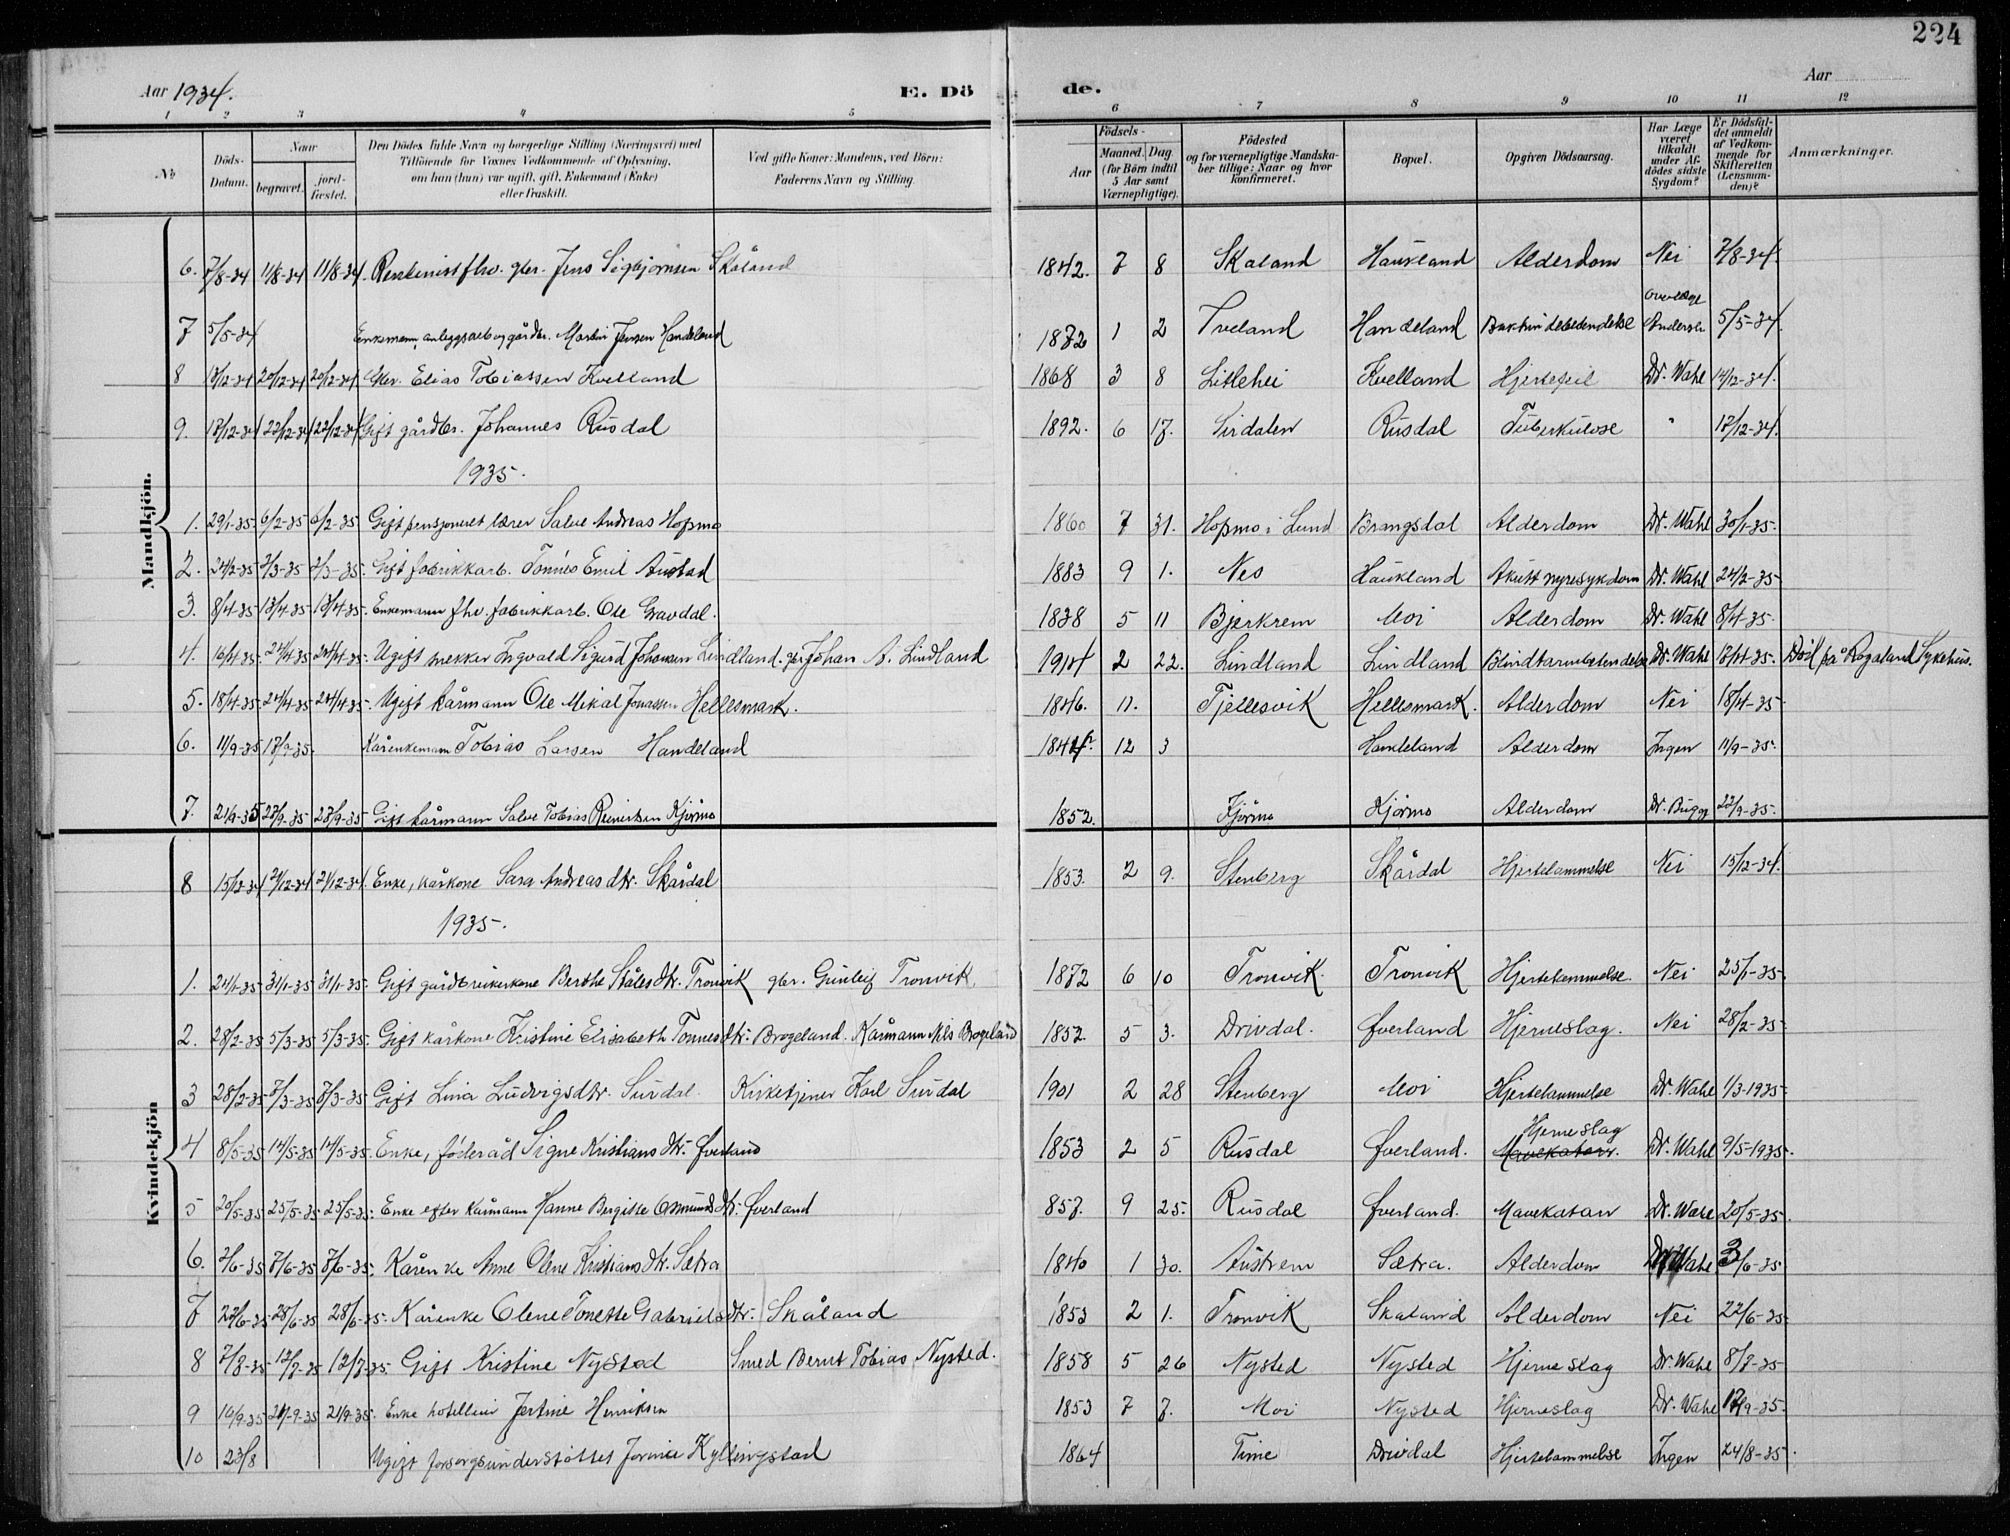 224
Aar 1934.
E. Dö
de.
Aar
1 2 3 4 5 6 7 8 9 10 11 12
No
Döds-Datum.
Naar
begravet.
jord-fæstet.
Den Dödes fulde Navn og borgerlige Stilling (Næringsvei) med Tilföiende for Voxnes Vedkommende af Oplysning, om han (hun) var ugift, gift, Enkemand (Enke) eller fraskilt.
Ved gifte Koner: Mandens, ved Börn: Faderens Navn og Stilling.
Födsels-
Aar
Maaned.
Dag.
(for Börn indtil 5 Aar samt Værnepligtige).
Födested og for værnepligtige Mandskaber tillige: Naar og hvor konfirmeret.
Bopæl.
Opgiven Dödsaarsag.
Har Læge været tilkaldt under Afdödes sidste Sygdom?
Er Dödsfaldet anmeldt af Vedkommende for Skifteretten (Lensmanden)?
Anmærkninger.
Mandkjön.
6. 7/8-34 11/8-34 11/8-34. Rentenist fhv. gbr. Jens Sigbjørnsen Skåland 1842. 7 8 Skaland Haukland Alderdom Nei 7/8-34
7 5/5-34 Enkemann, anleggsarb og gårdbr. Martin Jensen Handeland 1872 1 2 Tveland Handeland Overlæge Andersen 5/5-34.
8 13/12-34 20/12-34 20/12-34 Gbr. Elias Tobiassen Kvelland 1868 3 8 Litlehei Kvelland Hjertefeil Dr. Wahl 14/12-34.
9. 17/12-34 22/12-34 22/12-34 Gift gårdbr. Johannes Rusdal 1892. 6 17. Sirdalen Rusdal Tuberkulose " 17/12-34.
1935.
1. 29/1-35. 6/2-35 6/2-35. Gift pensjoneret lærer Salve Andreas Hopmo 1860 7 31. Hopmo i Lund Brangsdal Alderdom Dr. Wahl 30/1-35.
2. 24/2-35 2/3-35 2/3-35. Gift fabrikkarb. Tønnes Emil Austad 1883 9 1. Nes Haukland Akutt nyresykdom Dr. Wahl 24/2-35
3. 8/4-35 13/4-35 13/4-35. Enkemann fhv. fabrikkarb. Ole Gravdal. 1838 5 11 Bjerkrem Moi Alderdom Dr. Wahl 8/4-35.
4. 16/4-35. 24/4-35 24/4-35. Ugift snekker Ingvald Sigurd Johansen Lindland. gbr Johan A. Lindland 1914 2 22. Lindland Lindland Blindtarmbetendelse Dr. Wahl 17/4-35. Død på Rogaland Sykehus.
5. 18/4-35. 24/4-35 24/4-35. Ugift kårmann Ole Mikal Jonassen Hellesmark. 1846. 11. Fjellesvik Hellesmark. Alderdom Nei 18/4-35
6. 11/9-35 17/9-35. Kårenkemann Tobias Larsen Handeland 1844 12 3 Handeland Alderdom Ingen 11/9-35.
7. 21/9-35 27/9-35 27/9-35 Gift kårmann Salve Tobias Reinertsen Kjørmo 1852. Kjørmo Kjørmo Alderdom Dr. Bugge 22/9-35.
Kvindekjön
8 15/12-34 21/12-34 21/12-34. Enke, kårkone Sara Andreasdtr. Skårdal 1853. 2 9. Stenberg Skårdal Hjertelammelse Nei 15/12-34.
1935.
1. 24/1-35 31/1-35 31/1-35. Gift gårdbrukerkone Berthe Ståles dtr. Tronvik gbr. Gunleif Tronvik 1872 6 10 Tronvik. Tronvik Hjertelammelse. Nei 25/1-35.
2. 28/2-35 5/3-35 5/3-35. Gift kårkone Kristine Elisabeth Tønnesdtr. Brogeland. Kårmann Nils Brogeland 1852. 5 3. Drivdal. Øverland Hjerneslag. Nei 28/2-35.
3 28/2-35 7/3-35 7/3-35. Gift Lina Ludvigsdtr. Surdal. Kirketjener Karl Surdal 1901 2 28 Stenberg Moi Hjertelammelse Dr. Wahl 1/3-1935.
4 8/5-35 14/5-35 14/5-35. Enke, føderåd Signe Kristiansdtr. Øverland 1853 2 5 Rusdal Øverland. Hjerneslag Mavekatarr. Dr. Wahl 9/5-1935.
5 20/5-35 25/5-35 25/5-35. Enke efter kårmann Hanne Bergitte Osmundsdtr. Øverland 857. 9 25. Rusdal Øverland. Mavekatarr Dr. Wahl 20/5-35.
6. 2/6-35 7/6-35 7/6-35. Kårenke Anne Olene Kristiansdtr. Sætra 1840 1 30. Austrem Sætra. Alderdom Dr. Wahl 3/6-35
7 22/6-35 28/6-35 28/6-35. Kårenke Olene Tonette Gabrielsdtr. Skåland 1853 2 1. Tronvik Skaland Alderdom Nei 22/6-35
8 7/7-35 12/7-35 12/7-35. Gift Kristine Nysted Smed Bernt Tobias Nysted. 1858 5 26 Nysted Nysted Hjerneslag Dr. Wahl 8/7-35
9 16/9-35 21/9-35 21/9-35. Enke hotelleier Jertine Henriksen 1853 7 7. Moi Nysted Hjerneslag Dr. Wahl 17/9-35.
10 23/8 Ugift forsorgsunderstøttet Jorina Kyllingstad 1864 Time Drivdal Hjertelammelse Ingen 24/8-35.